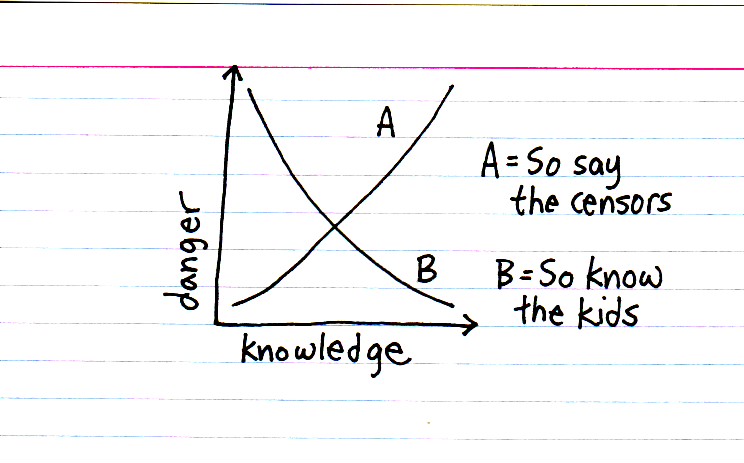 A
A = So say
the censors
danger
B
B = So know
the kids
knowledge